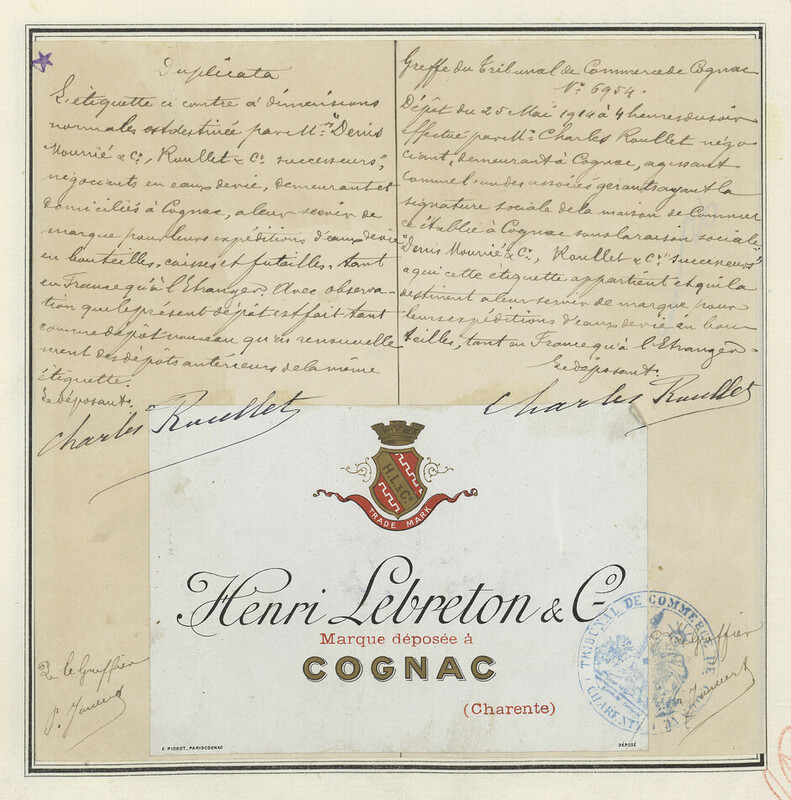 Duplicata
L'étiquette ci contre à dimensions
normales est destinée par MM. "Denis
Mounié & Co., Roullet & Co. successeurs",
négociants en eaux de vie, demeurant et
domiciliés à Cognac, a leur servir de
marque pour leurs expéditions d'eaux de vie
en bouteilles, caisses et futailles, tant
en France qu'à l'Etranger. Avec observa-
tion que le présent dépôt est fait tant
comme dépôt nouveau qu'en renouvelle
ment des dépôts antérieurs de la même
étiquette.
Le déposant.
Charles Roullet
Greffe du Tribunal de Commerce de Cognac
No 6954.
Dépôt du 25 Mai 1914 à 4 heures du soir
effectué par Mr. Charles Roullet négo
ciant, demeurant à Cognac, agissant
comme l'un des associés gérants ayant la
signature sociale de la maison de Commer
ce établie à Cognac sous la raison sociale:
"Denis Mounié & Co., Roullet & Co. successeurs"
a qui cette étiquette appartient et qui la
destinent a leur servir de marque pour
leurs expéditions d'eaux de vie en bou
teilles, tant en France qu'à l'Etranger.
Le déposant.
Charles Roullet
H.L. & Co
TRADE MARK
Henri Lebreton & Co
Marque déposée à
COGNAC
(Charente)
E. PICHOT, PARIS COGNAC
DÉPOSÉ
Le Greffier
TRIBUNAL DE COMMERCE DE
CHARENTE
Greffier